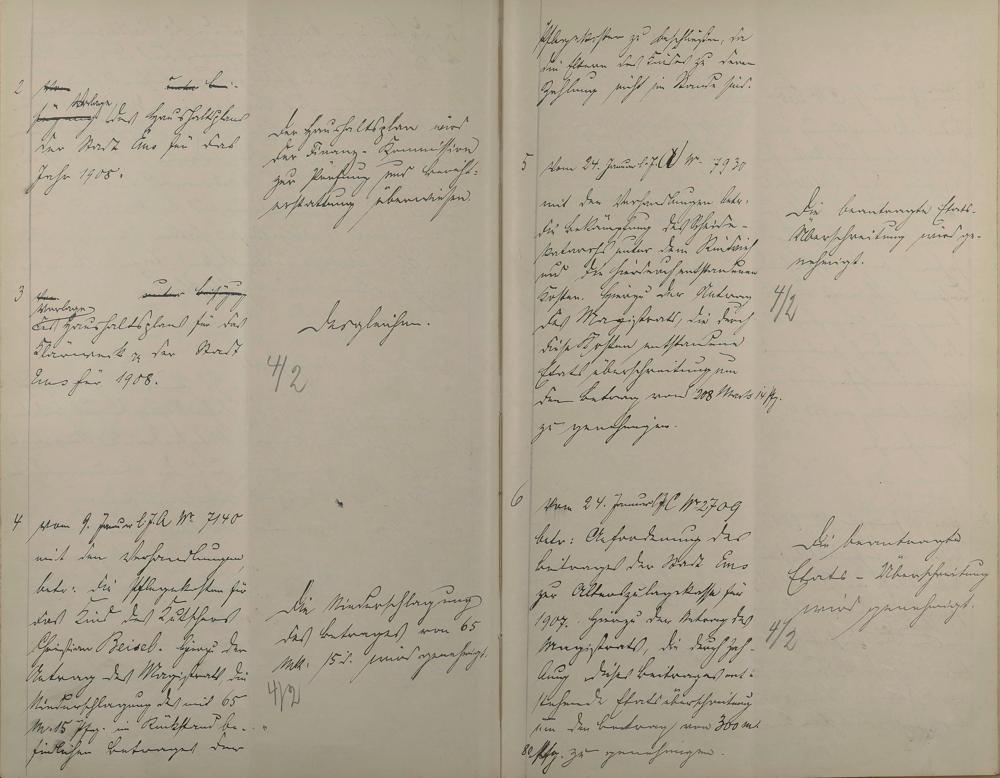 2
Vorlage
des Haushaltsplans
der Stadt Ems für das
Jahr 1908.
Der Haushaltsplan wird
der Finanz-Kommission
zur Prüfung und Bericht-
erstattung überwiesen.
3
Vorlage
des Haushaltsplans für das
Klärwerk der Stadt
Ems für 1908.
Desgleichen.
4/2
4 vom 9. Januar l. J. A No 7140
mit den Verhandlungen
betr: die Pflegekosten für
das Kind des Kutschers
Christian Beisel. Hierzu der
Antrag des Magistrats die
Niederschlagung des mit 65
M. 15 Pfg. in Rückstand be-
findlichen Betrages der
Die Niederschlagung
des Betrages von 65
Mk. 15 d. wird genehmigt.
4/2
Pflegekosten zu beschließen, da
die Eltern des Kindes zu deren
Zahlung nicht im Stande sind.
5 vom 24. Januar l. J. A No 7930
mit den Verhandlungen betr.
die Bekämpfung des Scheiden-
katarrhs unter dem Rindvieh
und die hierdurch entstandenen
Kosten. Hierzu der Antrag
des Magistrats, die durch
diese Kosten entstandene
Etatsüberschreitung um
den Betrag von 208 Mark 14 Pfg.
zu genehmigen.
Die beantragte Etats-
Überschreitung wird ge-
nehmigt.
4/2
6 vom 24. Januar l. J. C No 2709
betr: Anforderung des
Beitrages der Stadt Ems
zur Alterszulagekasse für
1907. Hierzu der Antrag des
Magistrats, die durch Zah-
lung dieses Beitrages ent-
stehende Etatsüberschreitung
um den Betrag von 300 M.
80 Pfg. zu genehmigen.
Die beantragte
Etats-Überschreitung
wird genehmigt.
4/2